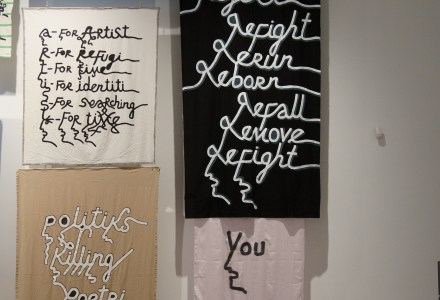 a-FOR Artist
R-FOR Refugi
t-FOR
i-FOR identiti
S-FOR Searching
t-FOR time
Refight
Rerun
Reborn
Refall
Remove
Refight
politiks
killing
poetri
You